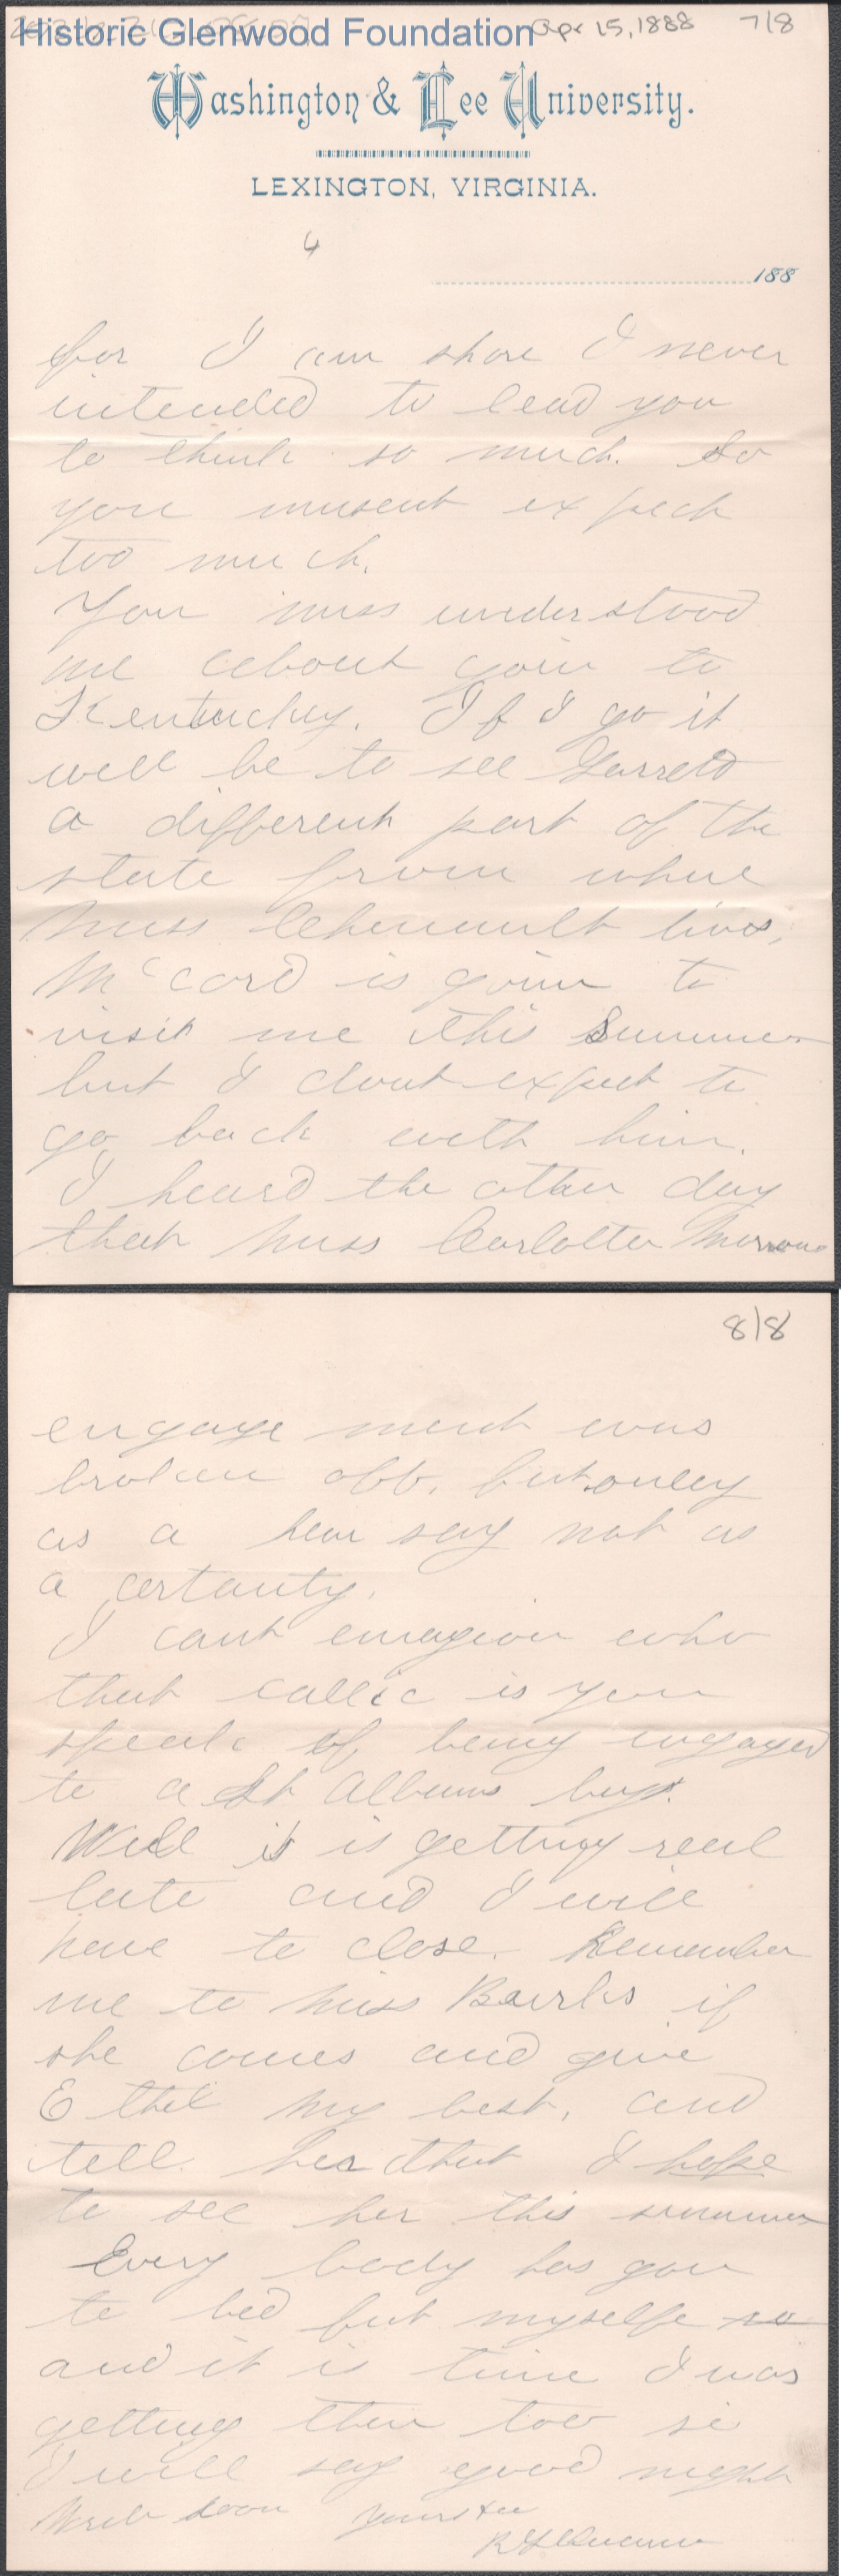 Historic Glenwood Foundation
Apr 15, 1888 7/8
Washington & Lee University.
LEXINGTON, VIRGINIA.
4
188
for I am shore I never
intended to lead you
to think so much. So
you musent expect
too much.
You miss understood
me about goin to
Kentucky. If I go it
will be to see Garrett
a different part of the
state from whue
Miss Chenault lives,
McCord is goin to
visit me this Summer
but I dont expect to
go back with him.
I heard the other day
that Miss Carlotta
8/8
engagement was
broken off, but onley
as a hear say not as
a certanty.
I cant emagion who
that is you
speak of being engaged
to a St Albans boy.
Well it is getting real
late and I will
have to close. Remember
me to Miss if
she comes and give
Ethel my best, and
tell her that I hope
to see her this summer
Every body has gon
to bed but myselfe so
and it is time I was
getting ther too so
I will say good night
Write soon Yours &c